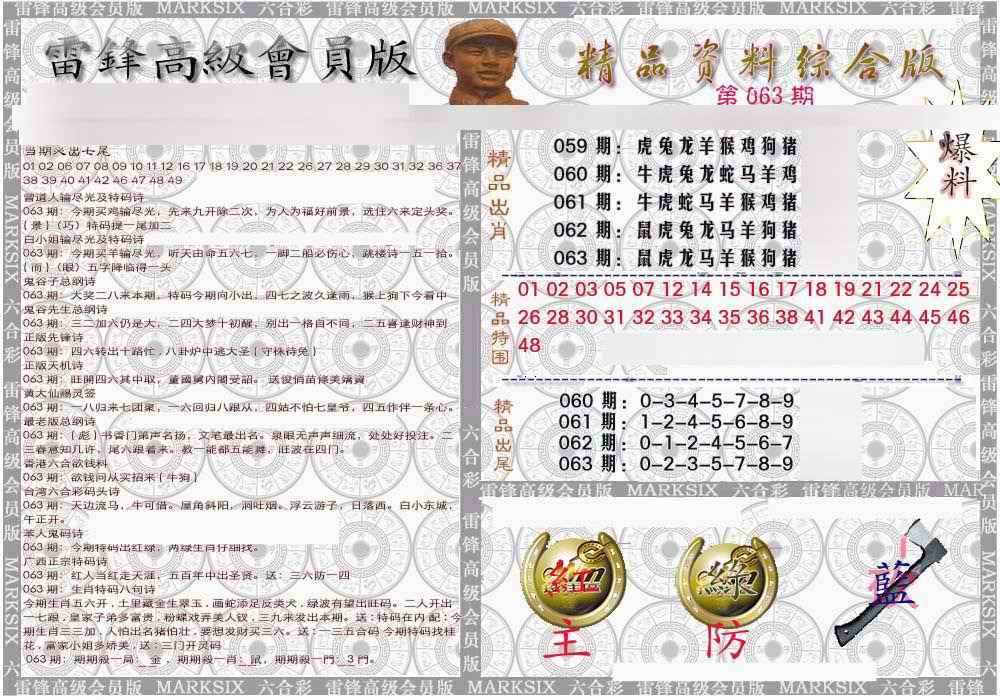 雷锋高级会员版 MARKSIX 六合彩 雷锋高级会员版 MARKSIX 六合彩 雷锋高级会员版 MARKSIX 六合彩
雷鋒高級會員版
精品资料综合版
第 063 期
01 02 06 07 08 09 10 11 12 16 17 18 19 20 21 22 26 27 28 29 30 31 32 36 37
38 39 40 41 42 46 47 48 49
曾道人输尽光及特码诗
063 期：今期买鸡输尽光，先来九开除二次，为人为福好前景，选住六来定头奖。
{景}（巧）特码提一尾加二
白小姐输尽光及特码诗
063 期：今期买羊输尽光，听天由命五六七，一脚二船必伤心，跳楼诗一五一拾。
{而}（眼）五字降临得一头
鬼谷子总纲诗
063 期：大奖二八来本期，特码今期向小出，四七之波久逢雨，猴上狗下今看中
鬼谷先生总纲诗
063 期：三二加六仍是大，二四大梦十初醒，别出一格自不同，二五喜逢财神到
正版先锋诗
063 期：四六转出十路忙，八卦炉中逃大圣{守株待兔}
正版天机诗
063 期：旺開四六其中取，董國舅內閣受詔。送俊俏苗條美嬌資
黄大仙赐灵签
063 期：一八归来七团聚，一六回归八跟从，四姑不怕七皇爷，四五作伴一条心。
最老版总纲诗
063 期：{彪}书香门第声名扬，文笔最出名。泉眼无声声细流，处处好投注。二
三春意知几许，尾六跟着来。教一能都五能舞，旺波在四门。
香港六合欲钱料
063 期：欲钱问从实招来{牛狗}
台湾六合彩码头诗
063 期：天边流马，牛可惜。屋角斜阳，涧吐烟。浮云游子，日落西。白小东城，
午正开。
本人鬼码诗
063 期：今期特码出红绿，两绿生肖仔细找。
广西正宗特码诗
063 期：红人当红走天涯，五百年中出圣贤。送：三六防一四
063 期：生肖特码八句诗
今期生肖五六开，土里藏金生翠玉，画蛇添足反类犬，绿波有望出旺码。二人开出
一七跟，皇家子弟多富贵，粉蝶戏弄美人钗，三九来发出本期。送：特码在内 配：今
期生肖三三加，人怕出名猪怕壮，要想发财买三六。送：一三五合码 今期特码找桂
花，富家小姐多娇美，送：三门开灵码
063 期：期期殺一局：金，期期殺一肖：鼠，期期殺一門：3 門。
爆料
精品出肖
059 期：虎兔龙羊猴鸡狗猪
060 期：牛虎兔龙蛇马羊鸡
061 期：牛虎蛇马羊猴鸡猪
062 期：鼠虎兔龙马羊狗猪
063 期：鼠虎龙马羊猴狗猪
精品特围
01 02 03 05 07 12 14 15 16 17 18 19 21 22 24 25
26 28 30 31 32 33 34 35 36 38 41 42 43 44 45 46
48
精品出尾
060 期：0-3-4-5-7-8-9
061 期：1-2-4-5-6-8-9
062 期：0-1-2-4-5-6-7
063 期：0-2-3-5-7-8-9
雷锋高级会员版 MARKSIX 六合彩 雷锋高级会员版 MARK
紅
主
綠
防
藍
雷锋高级会员版 MARKSIX 六合彩 雷锋高级会员版 MARKSIX 六合彩 雷锋高级会员版 MARKSIX 六合彩